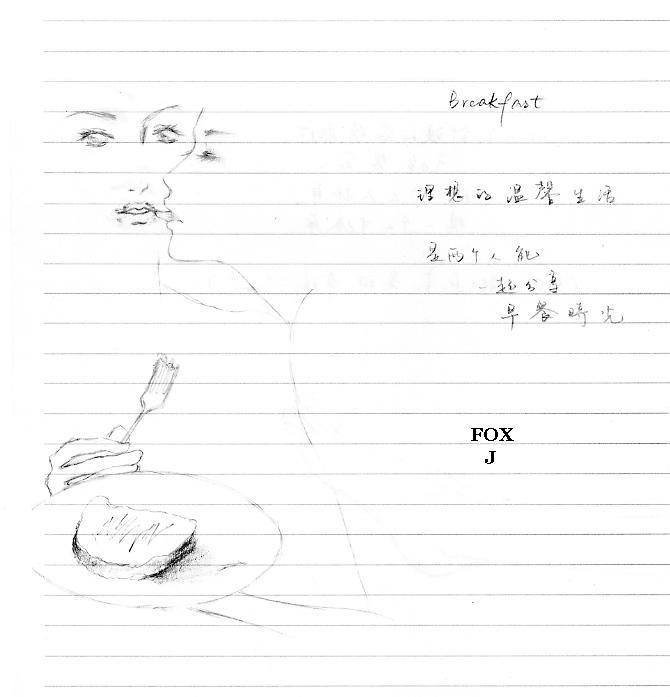 Breakfast
理想的溫馨生活
是兩个人能
一起分享
早餐時光
FOX
J